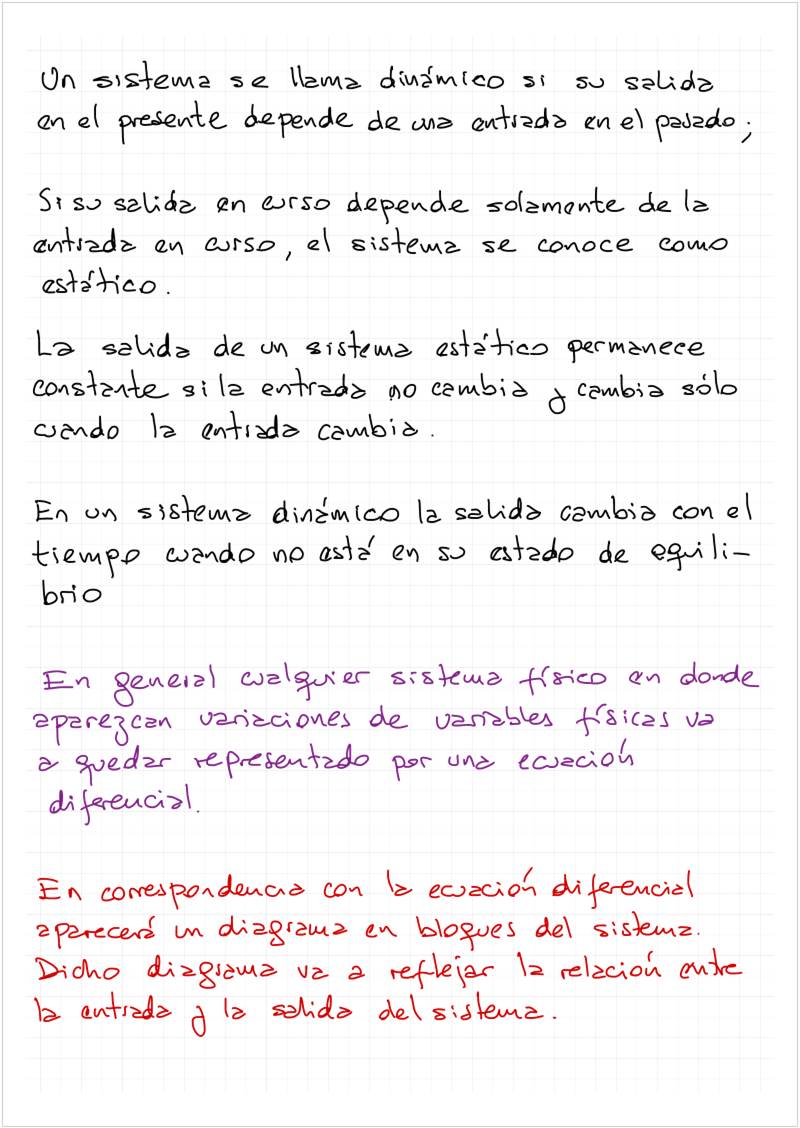 Un sistema se llama dinámico si su salida
en el presente depende de una entrada en el pasado;
Si su salida en curso depende solamente de la
entrada en curso, el sistema se conoce como
estático.
La salida de un sistema estático permanece
constante si la entrada no cambia y cambia sólo
cuando la entrada cambia.
En un sistema dinámico la salida cambia con el
tiempo cuando no está en su estado de equili-
brio
En general cualquier sistema físico en donde
aparezcan variaciones de variables físicas va
a quedar representado por una ecuación
diferencial.
En correspondencia con la ecuación diferencial
aparecerá un diagrama en bloques del sistema.
Dicho diagrama va a reflejar la relación entre
la entrada y la salida del sistema.